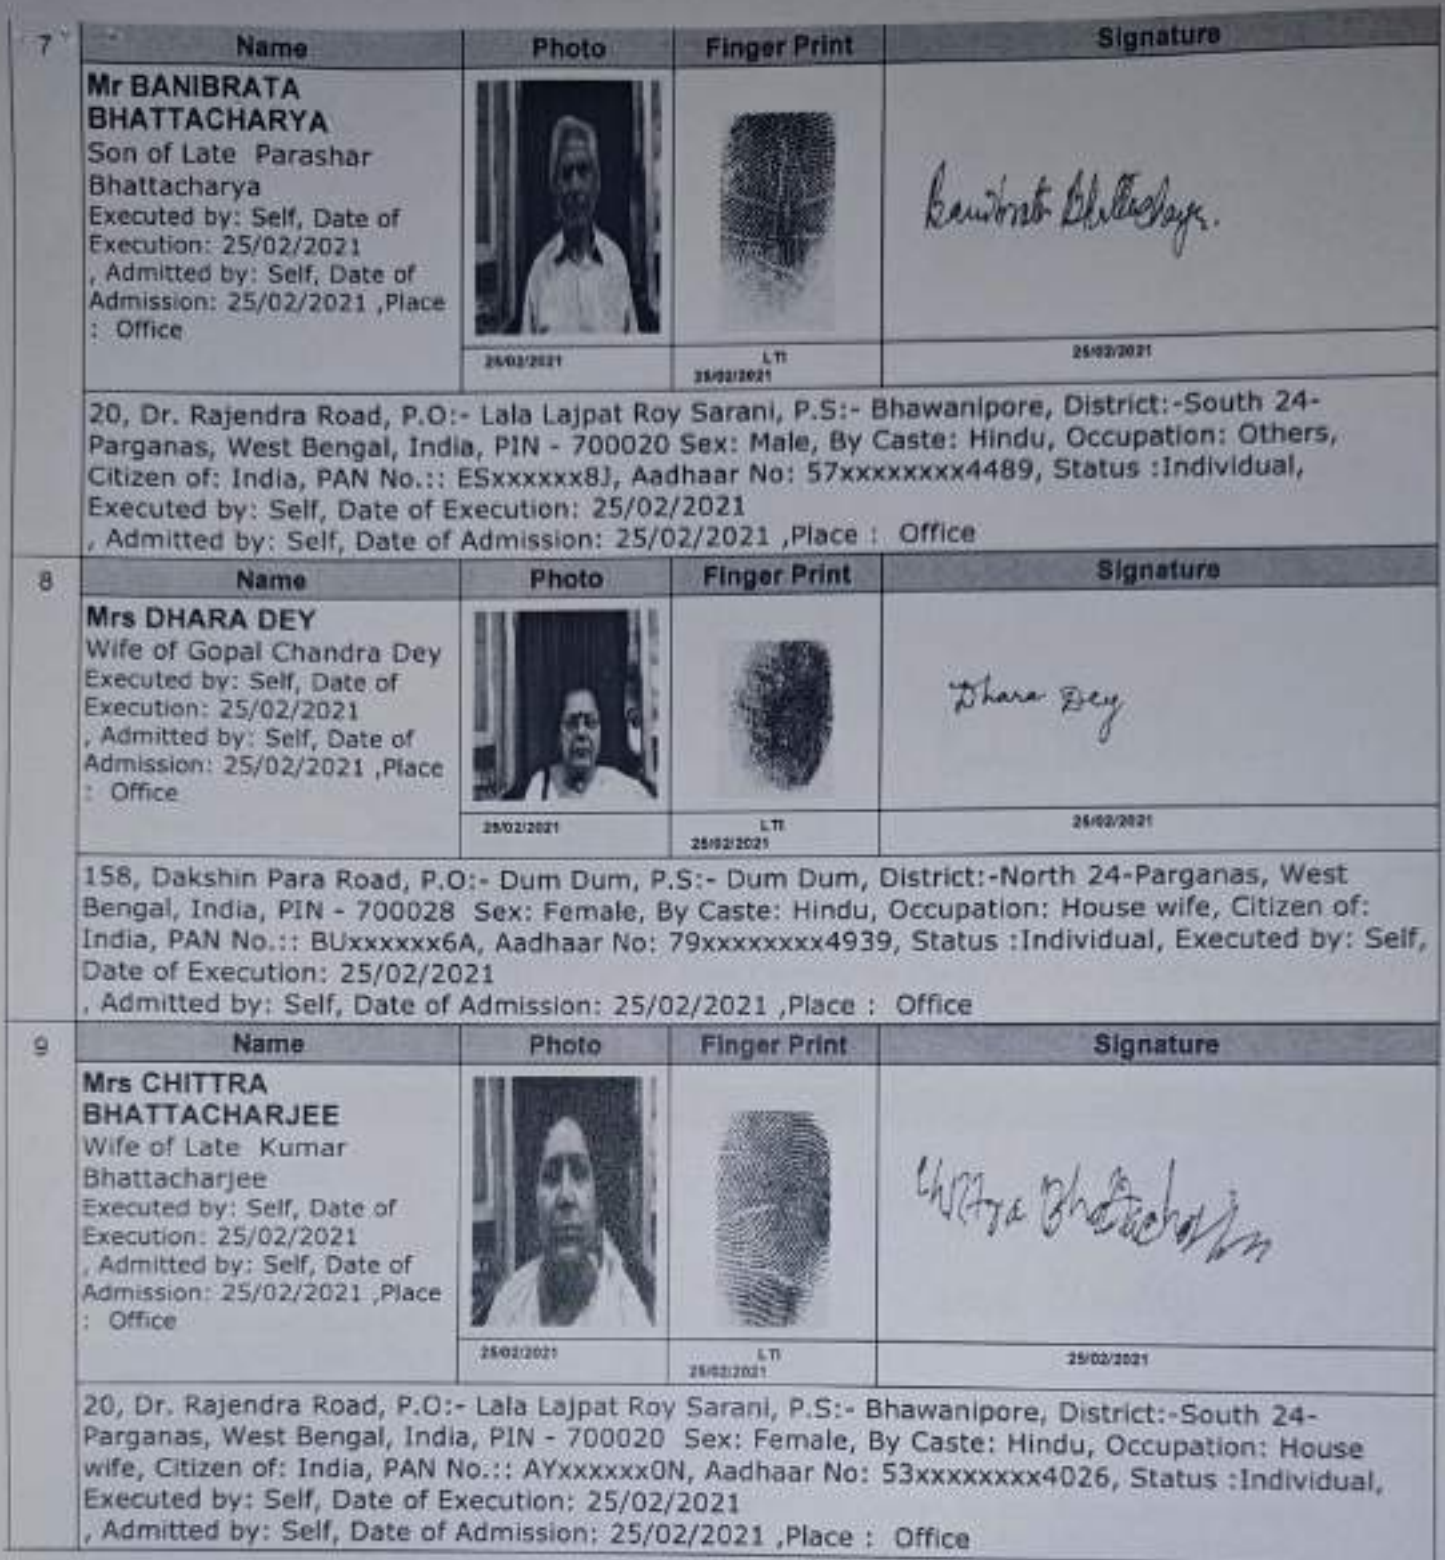 7
Name Photo Finger Print Signature
Mr BANIBRATA
BHATTACHARYA
Son of Late Parashar
Bhattacharya
Executed by: Self, Date of
Execution: 25/02/2021
, Admitted by: Self, Date of
Admission: 25/02/2021 ,Place
: Office
Banibrata Bhattacharya.
25/02/2021 LTI 25/02/2021
25/02/2021
20, Dr. Rajendra Road, P.O:- Lala Lajpat Roy Sarani, P.S:- Bhawanipore, District:-South 24-
Parganas, West Bengal, India, PIN - 700020 Sex: Male, By Caste: Hindu, Occupation: Others,
Citizen of: India, PAN No.:: ESxxxxxx8J, Aadhaar No: 57xxxxxxxx4489, Status :Individual,
Executed by: Self, Date of Execution: 25/02/2021
, Admitted by: Self, Date of Admission: 25/02/2021 ,Place : Office
8
Name Photo Finger Print Signature
Mrs DHARA DEY
Wife of Gopal Chandra Dey
Executed by: Self, Date of
Execution: 25/02/2021
, Admitted by: Self, Date of
Admission: 25/02/2021 ,Place
: Office
Dhara Dey
25/02/2021 LTI 25/02/2021
25/02/2021
158, Dakshin Para Road, P.O:- Dum Dum, P.S:- Dum Dum, District:-North 24-Parganas, West
Bengal, India, PIN - 700028 Sex: Female, By Caste: Hindu, Occupation: House wife, Citizen of:
India, PAN No.:: BUxxxxxx6A, Aadhaar No: 79xxxxxxxx4939, Status :Individual, Executed by: Self,
Date of Execution: 25/02/2021
, Admitted by: Self, Date of Admission: 25/02/2021 ,Place : Office
9
Name Photo Finger Print Signature
Mrs CHITTRA
BHATTACHARJEE
Wife of Late Kumar
Bhattacharjee
Executed by: Self, Date of
Execution: 25/02/2021
, Admitted by: Self, Date of
Admission: 25/02/2021 ,Place
: Office
25/02/2021 LTI 25/02/2021
25/02/2021
20, Dr. Rajendra Road, P.O:- Lala Lajpat Roy Sarani, P.S:- Bhawanipore, District:-South 24-
Parganas, West Bengal, India, PIN - 700020 Sex: Female, By Caste: Hindu, Occupation: House
wife, Citizen of: India, PAN No.:: AYxxxxxx0N, Aadhaar No: 53xxxxxxxx4026, Status :Individual,
Executed by: Self, Date of Execution: 25/02/2021
, Admitted by: Self, Date of Admission: 25/02/2021 ,Place : Office